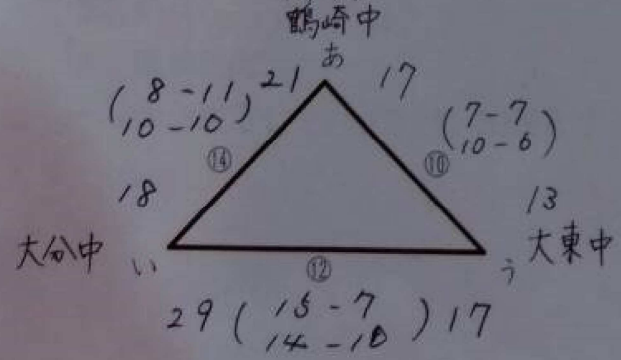 鶴崎中
あ
(8-11
10-10) 21 17 (7-7
10-6)
⑭ ⑩
18 13
大分中 い う 大東中
⑫
29 (15-7
14-10) 17